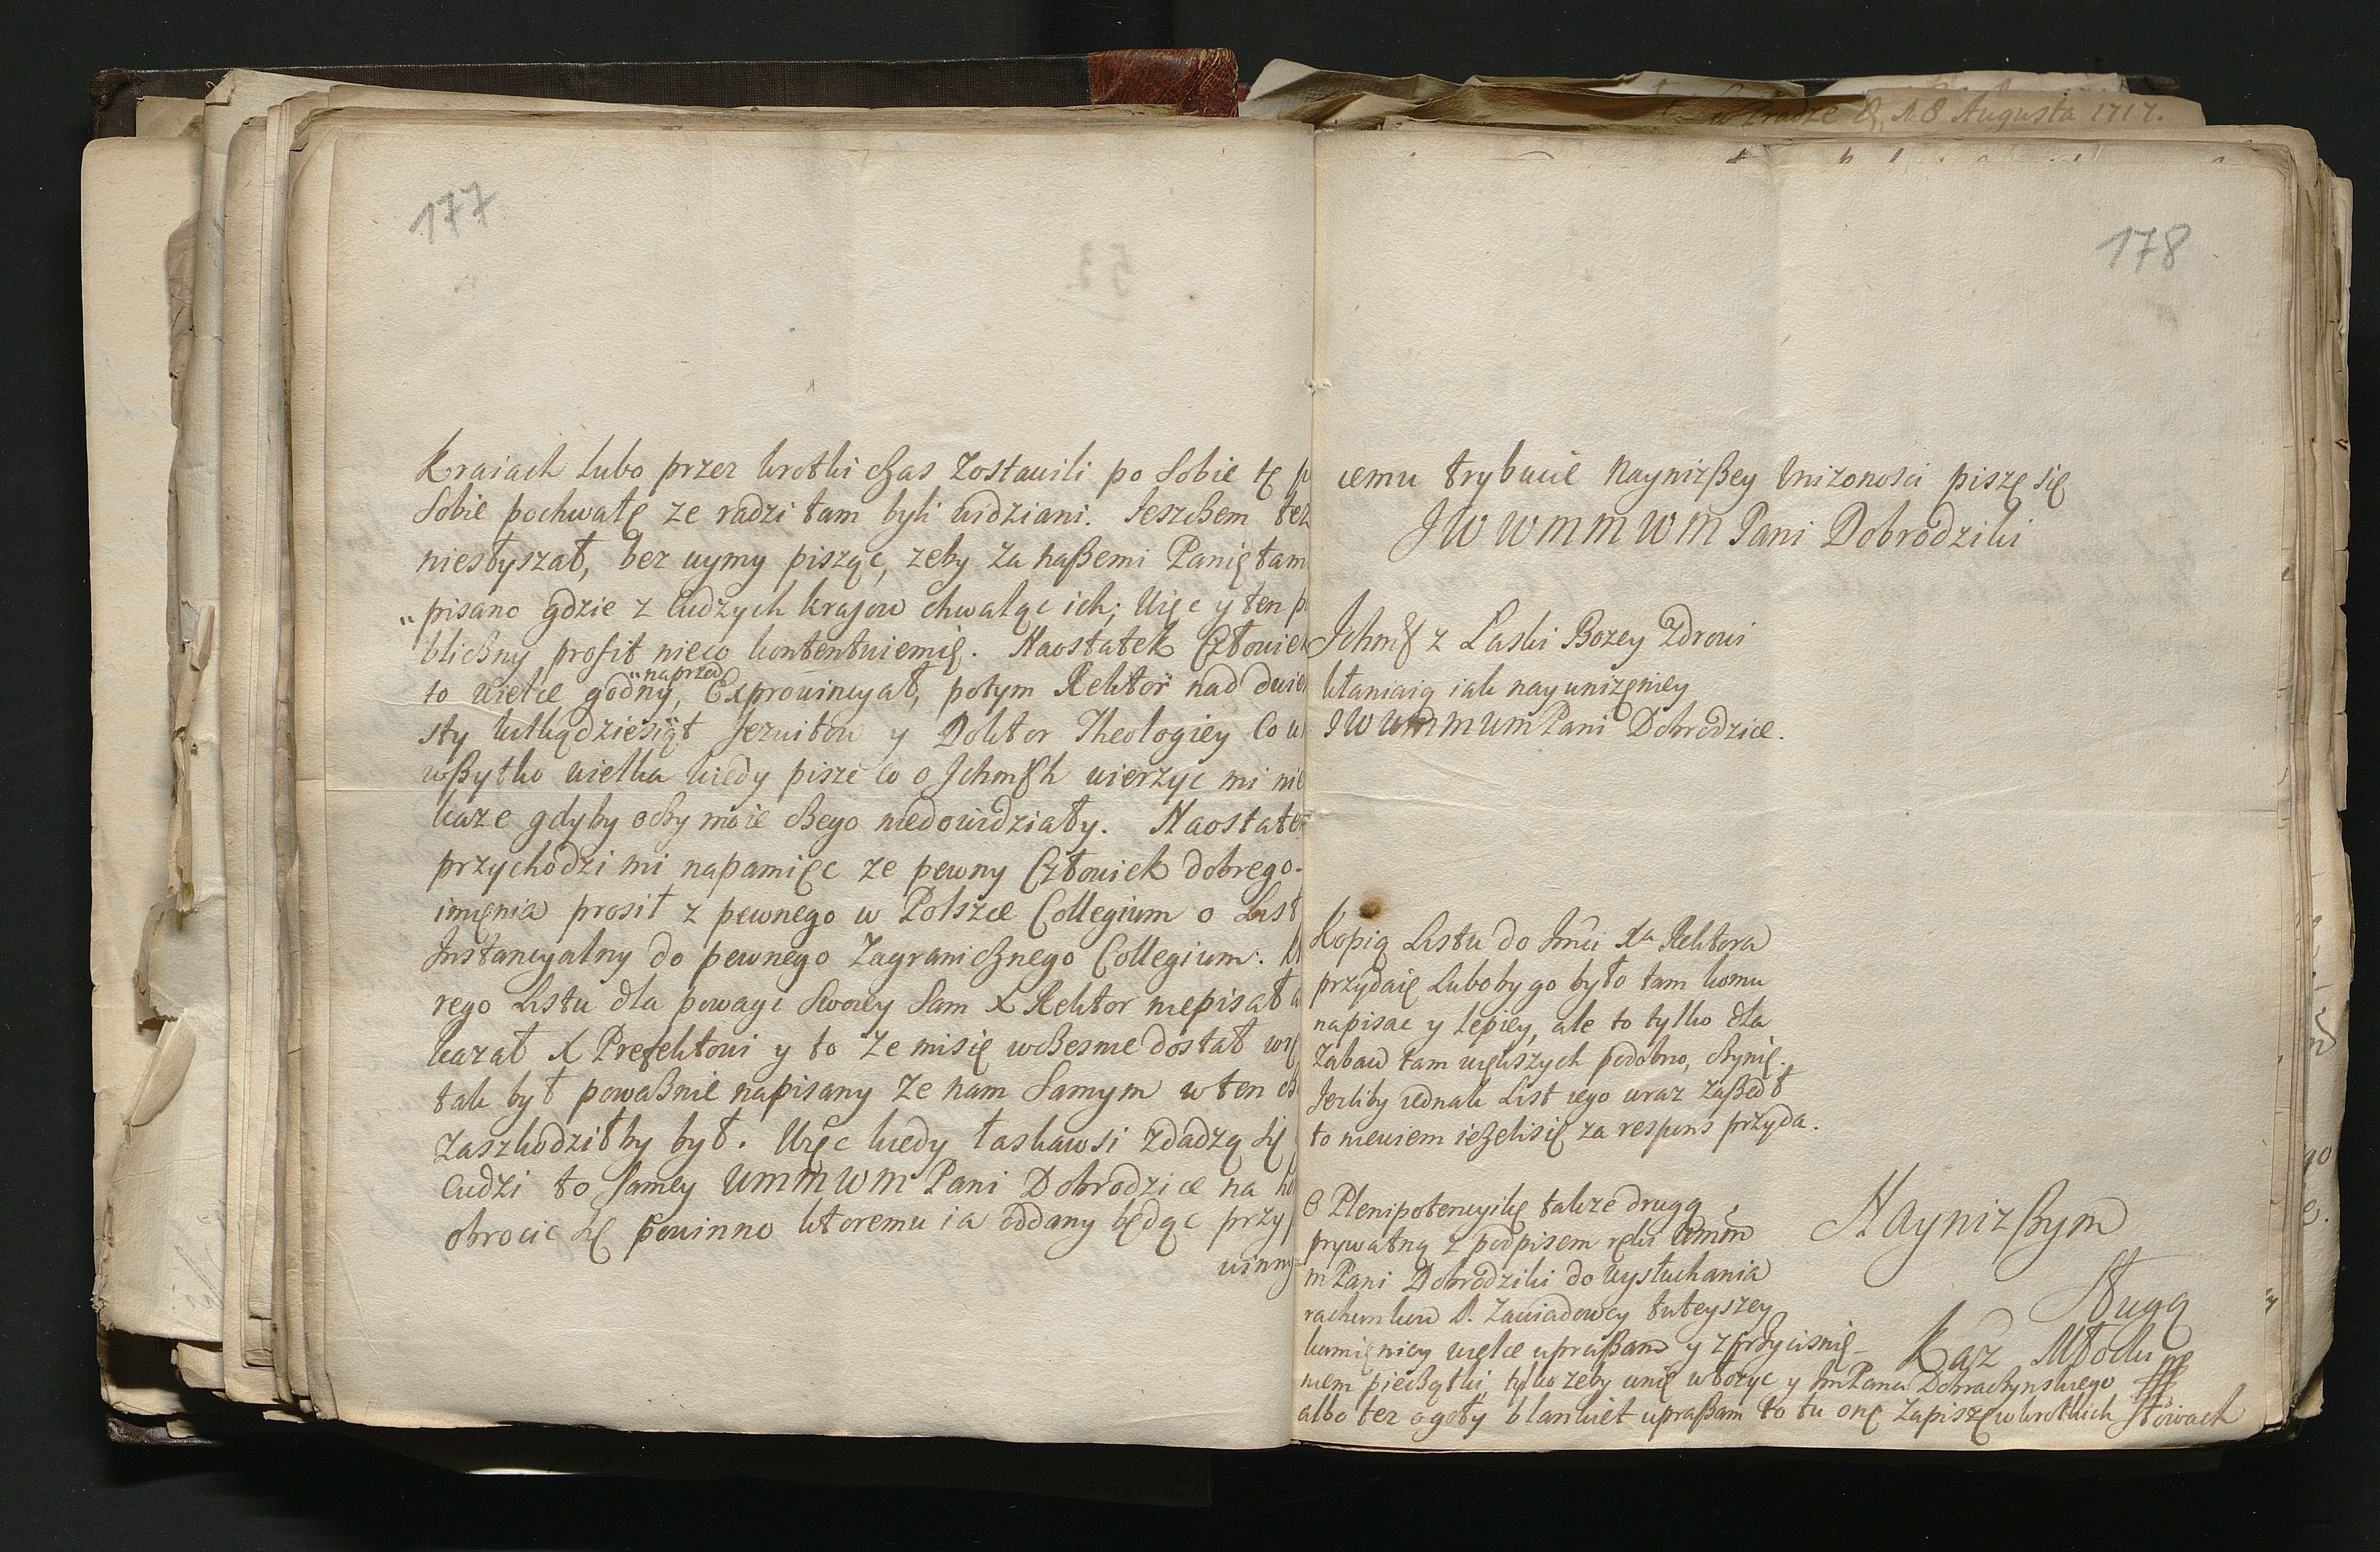 w Pradze d. 18 Augusta 1717.
177
Kraiach lubo przez krotki czas zostawili po sobie tę
sobie pochwałę ze radzi tam byli widziani. Jeszczem tez
niesłyszał, bez uymy pisząc, zeby za naszemi Panięta
pisano gdzie z cudzych kraiow chwaląc ich; Więc y ten
bliczny profit nieco kontentuiemię. Naostatek Człowiek
to wielce godny, naprzed Exprowincyał, potym Rektor nad dwie
sty kilkądziesiąt Jezuitow y Doktor Theologiey Co
wszytko wielka kiedy pisze co o Ichmść wierzyc mi nie
kaze gdyby oczy moie czego niedowidziały. Naostatek
przychodzi mi napamięc ze pewny Człowiek dobrego
imienia prosił z pewnego w Polszcze Collegium o List
Instancyalny do pewnego Zagranicznego Collegium.
rego Listu dla powagi swoiey sam X Rektor niepisał
kazał X Prefektowi y to ze misię wczesnie dostał
tak był powaznie napisany ze nam samym w ten
zaszkodziłby był. Więc kiedy łaskawsi zdadzą się
cudzi to samey WMMWM Pani Dobrodzice na
obrocic się powinno ktoremu ia oddany będąc przy
winny
178
iemu trybucie nayniższey unizonosci piszę się
JW WMM WM Pani Dobrodziki
Ichmść z Łaski Bozey zdrowi
kłaniaią iak nayunizeniey
JW WMMWM Pani Dobrodzice.
Kopią Listu do Jmci Xa Rektora
przydaię Luboby go było tam komu
napisac y lepiey, ale to tylko dla
zabaw tam większych podobno, czynię.
Jezliby iednak List iego wraz zaszedł
to niewiem iezelisię za respons przyda.
O Plenipotencyikę takze drugą
prywatną z podpisem ręki WMM
m Pani Dobrodziki do wysłuchania
rachunkow P. Zawiadowcy tuteyszey
kamienicy wielce upraszam y z przycisnie-
niem pieczątki, tylko zeby wnię włozyc y Jm Pana Dobraczynskiego
albo tez o goły blankiet upraszam to tu onę zapiszę w krotkich słowach
Nayniższym
Sługą
Kaz Młocki